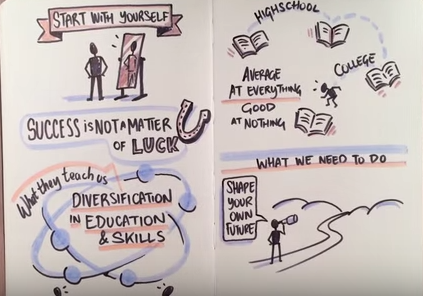 START WITH YOURSELF
SUCCESS IS NOT A MATTER
OF LUCK
What they teach us
DIVERSIFICATION
IN EDUCATION
& SKILLS
HIGHSCHOOL
COLLEGE
AVERAGE
AT EVERYTHING
GOOD
AT NOTHING
WHAT WE NEED TO DO
SHAPE
YOUR
OWN
FUTURE